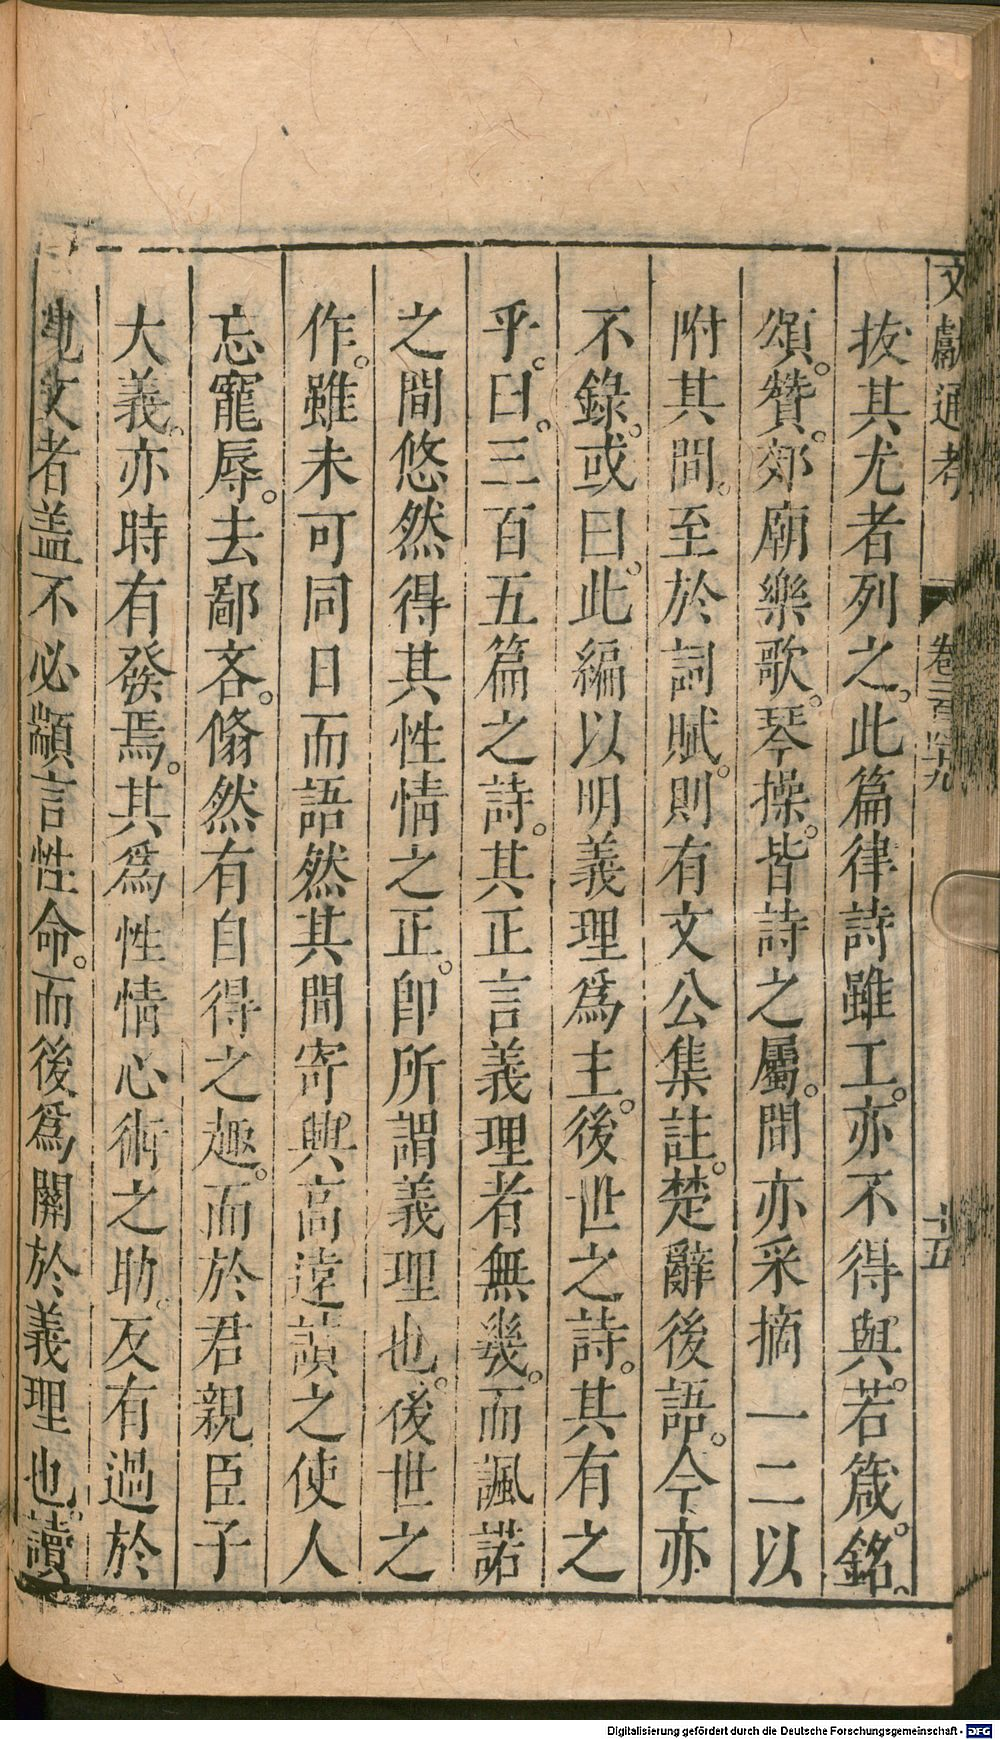 文獻通考 卷二百四十九 十五
拔其尤者列之。此篇律詩雖工。亦不得與。若箴。銘。
頌。贊。郊廟樂歌。琴操。皆詩之屬。間亦采摘一二以
附其間。至於詞賦。則有文公集註。楚辭後語。今亦
不錄。或曰。此編以明義理爲主。後世之詩。其有之
乎。曰。三百五篇之詩。其正言義理者無幾。而諷諾
之間悠然得其性情之正。卽所謂義理也。後世之
作。雖未可同日而語然其間寄興高遠讀之使人
忘寵辱。去鄙吝。翛然有自得之趣。而於君親臣子
大義。亦時有發焉。其爲性情心術之助。反有過於
他文者盖不必顓言性命。而後爲關於義理也。讀
Digitalisierung gefördert durch die Deutsche Forschungsgemeinschaft - DFG